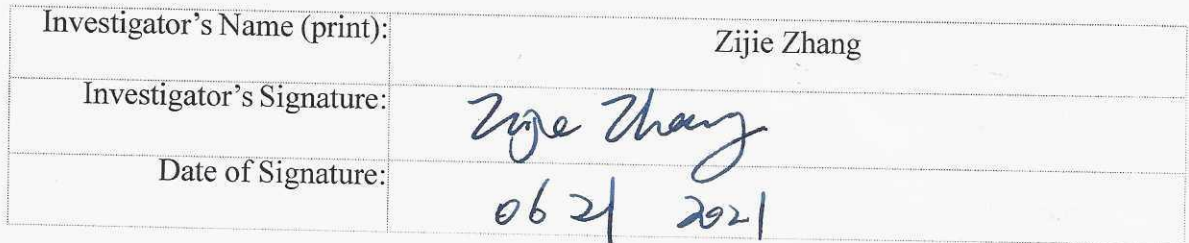 Investigator's Name (print): Zijie Zhang
Investigator's Signature: Zijie Zhang
Date of Signature: 06 21 2021